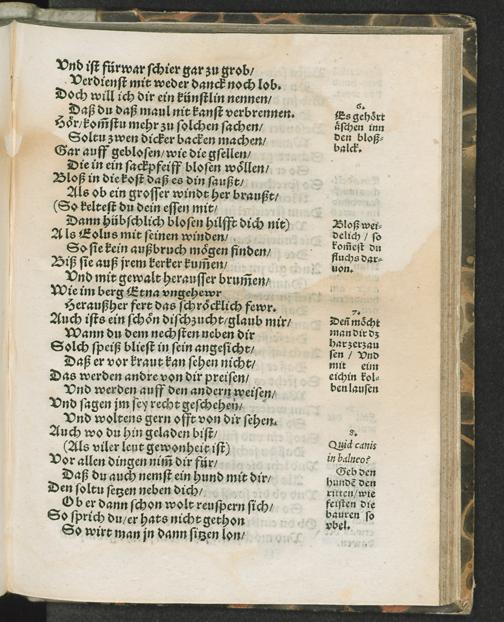 Vnd ist fürwar schier gar zu grob/
Verdienst mit weder danck noch lob.
Doch will ich dir ein künstlin nennen/
Daß du daß maul nit kanst verbrennen.
Hör/kom̃stu mehr zu solchen sachen/
Soltu zwen dicker backen machen/
Gar auff geblosen/wie die gsellen/
Die in ein sackpfeiff blosen wöllen/
Bloß in die kost daß es din saußt/
Als ob ein grosser windt her braußt/
(So keltest du dein essen mit/
Dann hübschlich blosen hilfft dich nit)
Als Eolus mit seinen winden/
So sie kein außbruch mögen finden/
Biß sie auß jrem kerker kum̃en/
Vnd mit gewalt herausser brum̃en/
Wie im berg Etna vngehewr
Heraußher fert das schröcklich fewr.
Auch ists ein schön dischzucht/glaub mir/
Wann du dem nechsten neben dir
Solch speiß bliest in sein angesicht/
Daß er vor kraut kan sehen nicht/
Das werden andre von dir preisen/
Vnd werden auff den andern weisen/
Vnd sagen jm sey recht geschehen/
Vnd woltens gern offt von dir sehen.
Auch wo du hin geladen bist/
(Als viler leut gewonheit ist)
Vor allen dingen nim̃ dir für/
Daß du auch nemst ein hund mit dir/
Den soltu setzen neben dich/
Ob er dann schon wolt reuspern sich/
So sprich du/er hats nicht gethon
So wirt man jn dann sitzen lon/
6.
Es gehört
äschen inn
den bloß-
balck.
Bloß wei-
delich / so
kom̃est du
fluchs dar-
uon.
7.
Deñ möcht
man dir dz
har zerzau
sen / Vnd
mit eim
eichin kol-
ben lausen
8.
Quid canis
in balneo?
Geb den
hundẽ den
ritten/wie
feisten die
bauren so
vbel.